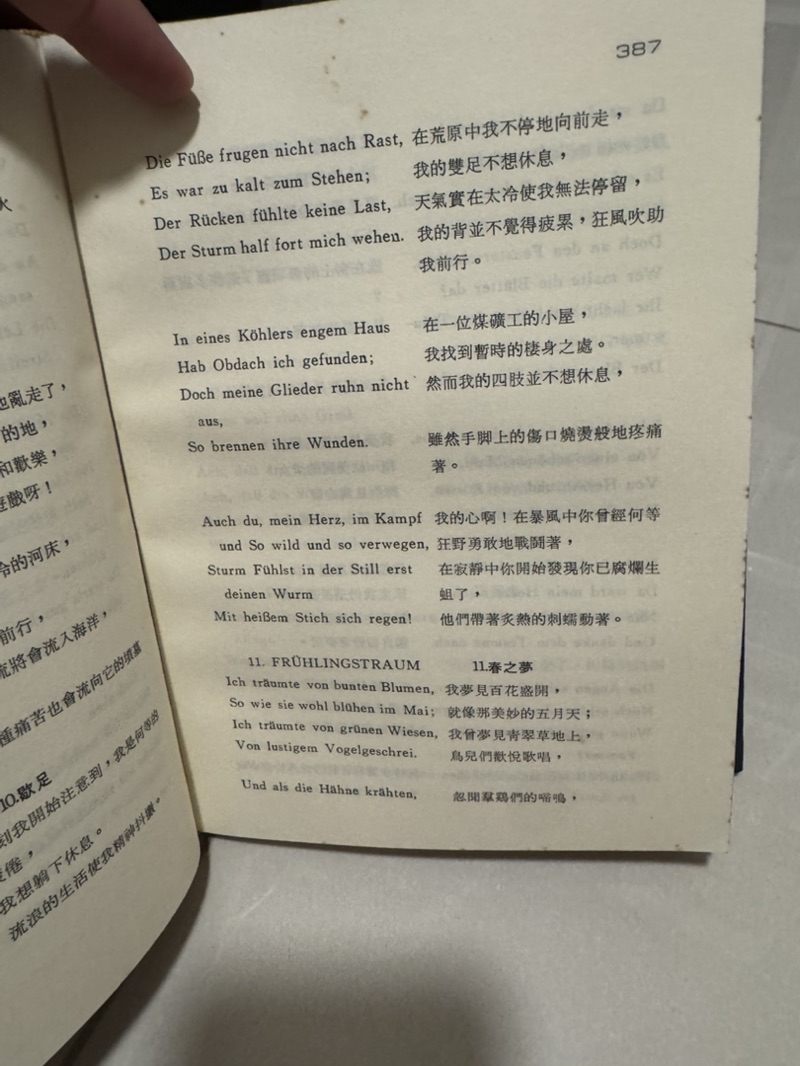 火
也亂走了，
的地，
和歡樂，
遊戲呀！
冷的河床，
前行，
流將會流入海洋，
種痛苦也會流向它的墳墓
10.歇足
刻我開始注意到，我是何等的
疲倦，
我想躺下休息。
流浪的生活使我精神抖擻。
387
Die Füße frugen nicht nach Rast, 在荒原中我不停地向前走，
Es war zu kalt zum Stehen; 我的雙足不想休息，
Der Rücken fühlte keine Last, 天氣實在太冷使我無法停留，
Der Sturm half fort mich wehen. 我的背並不覺得疲累，狂風吹助
我前行。
In eines Köhlers engem Haus 在一位煤礦工的小屋，
Hab Obdach ich gefunden; 我找到暫時的棲身之處。
Doch meine Glieder ruhn nicht 然而我的四肢並不想休息，
aus,
So brennen ihre Wunden. 雖然手脚上的傷口燒燙般地疼痛
著。
Auch du, mein Herz, im Kampf 我的心啊！在暴風中你曾經何等
und So wild und so verwegen, 狂野勇敢地戰鬪著，
Sturm Fühlst in der Still erst 在寂靜中你開始發現你已腐爛生
deinen Wurm 蛆了，
Mit heißem Stich sich regen! 他們帶著炙熱的刺蠕動著。
11. FRÜHLINGSTRAUM 11.春之夢
Ich träumte von bunten Blumen, 我夢見百花盛開，
So wie sie wohl blühen im Mai; 就像那美妙的五月天；
Ich träumte von grünen Wiesen, 我曾夢見青翠草地上，
Von lustigem Vogelgeschrei. 鳥兒們歡悅歌唱，
Und als die Hähne krähten, 忽聞羣鷄們的啼鳴，